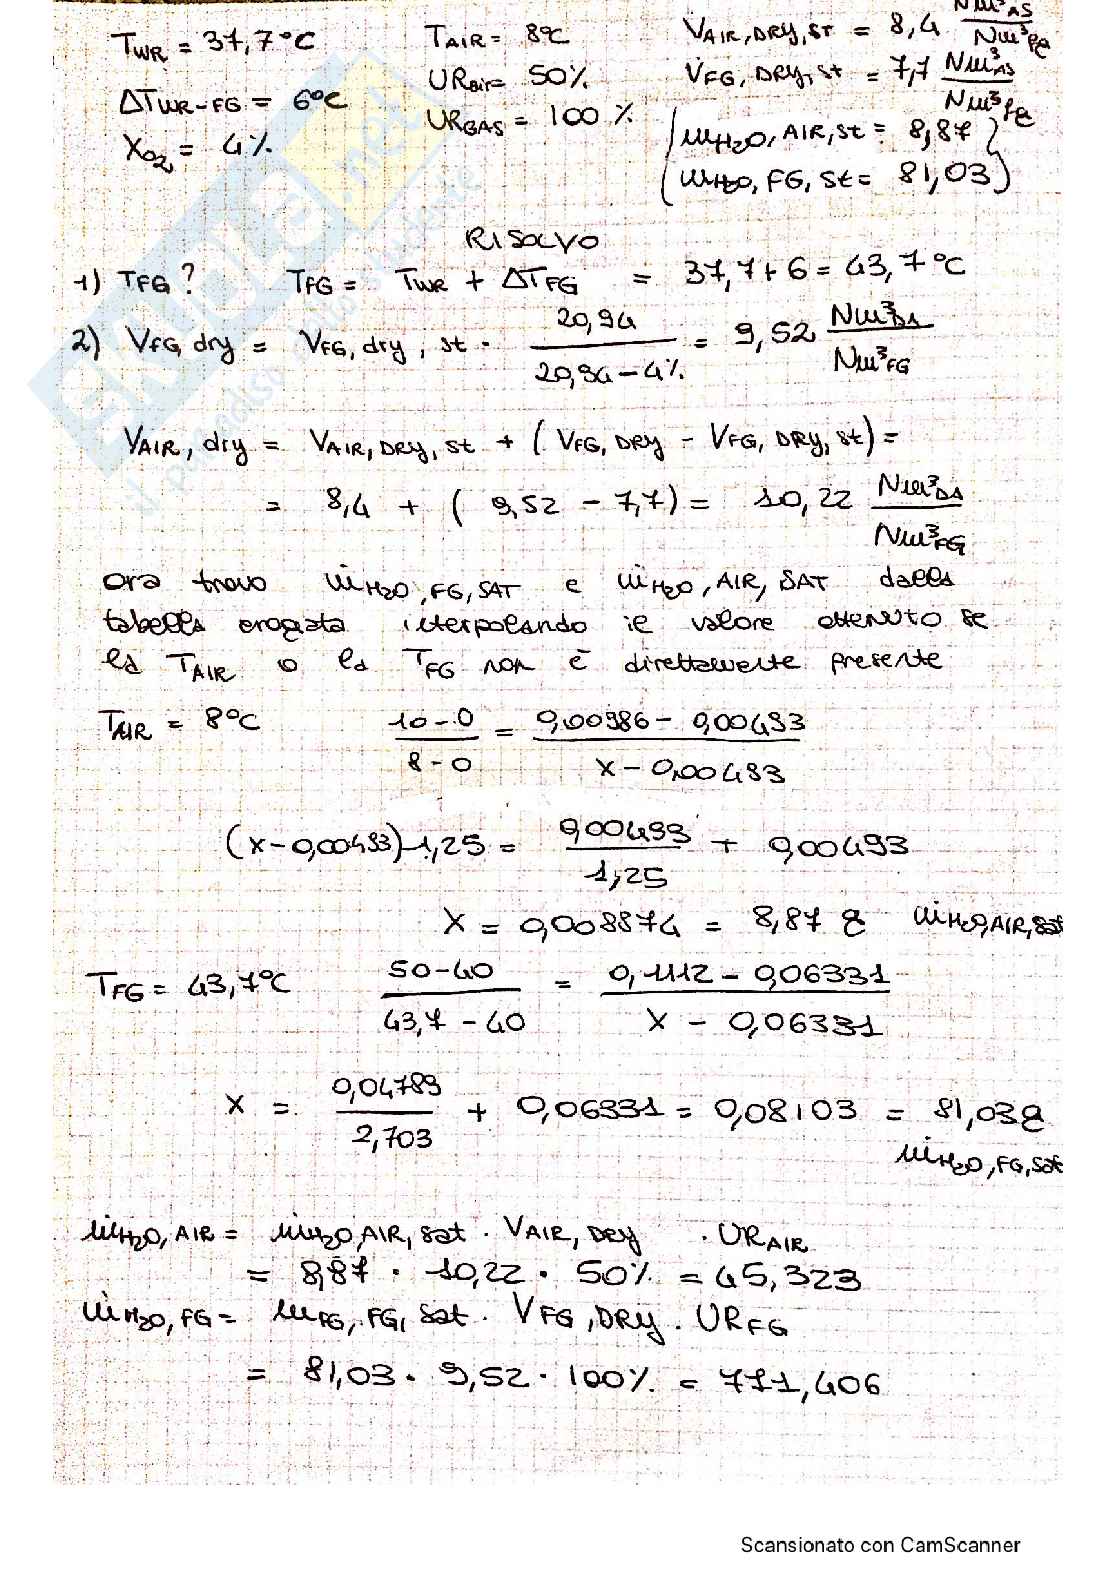 TWR = 37,7°C TAIR = 8°C VAIR,DRY,ST = 8,4 Nm³AS/Nm³fg
ΔTWR-FG = 6°C URair = 50% VFG,DRY,st = 7,7 Nm³AS/Nm³fg
XO2 = 4% URGAS = 100% (ṁH2O,AIR,st = 8,87)
(ṁH2O,FG,st = 81,03)
RISOLVO
1) TFG? TFG = TWR + ΔTFG = 37,7+6 = 43,7°C
2) VFG,dry = VFG,dry,st · 20,94/(20,94-4%) = 9,52 Nm³DA/Nm³FG
VAIR,dry = VAIR,DRY,st + (VFG,DRY - VFG,DRY,st) =
= 8,4 + (9,52 - 7,7) = 10,22 Nm³DA/Nm³FG
Ora trovo ṁH2O,FG,SAT e ṁH2O,AIR,SAT dalla
tabella erogata interpolando il valore ottenuto se
la TAIR o la TFG non è direttamente presente
TAIR = 8°C (10-0)/(8-0) = (0,00986-0,00493)/(x-0,00493)
(x-0,00493)·1,25 = 0,00493/1,25 + 0,00493
X = 0,008874 = 8,87 g ṁH2O,AIR,sat
TFG = 43,7°C (50-40)/(43,7-40) = (0,1112-0,06331)/(X-0,06331)
X = 0,04789/2,703 + 0,06331 = 0,08103 = 81,03g
ṁH2O,FG,sat
ṁH2O,AIR = ṁH2O,AIR,sat · VAIR,DRY · URAIR
= 8,87 · 10,22 · 50% = 45,323
ṁH2O,FG = ṁFG,FG,sat · VFG,DRY · URFG
= 81,03 · 9,52 · 100% = 771,406
Scansionato con CamScanner